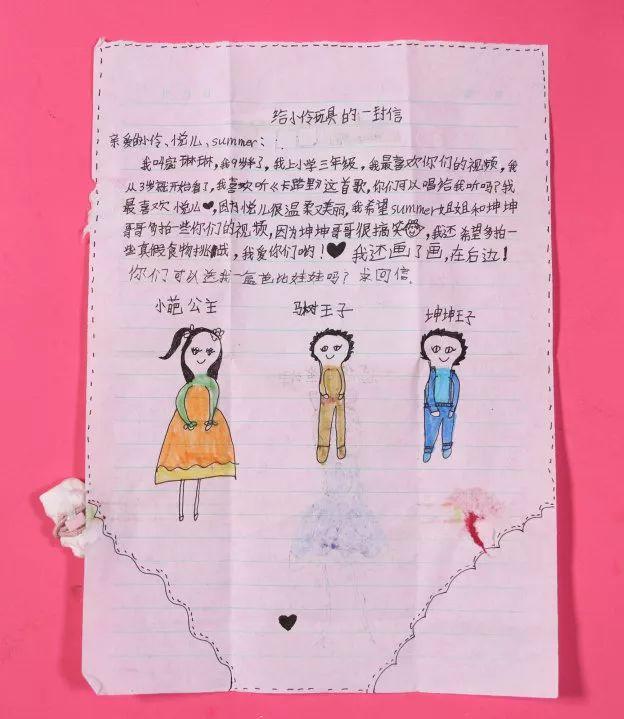 给小伶玩具的一封信
亲爱的小伶、悦儿、summer：
我叫窦琳琳，我9岁半了，我上小学三年级，我最喜欢你们的视频，我
从3岁就开始看了，我喜欢听《卡路里》这首歌，你们可以唱给我听吗？我
最喜欢悦儿♥，因为悦儿很温柔又美丽，我希望summer姐姐和坤坤
哥哥多拍一些你们的视频，因为坤坤哥哥很搞笑，我还希望多拍一
些真假食物挑战，我爱你们哟！♥我还画了画，在后边！
你们可以送我一盒芭比娃娃吗？求回信
小葩公主
马树王子
坤坤王子